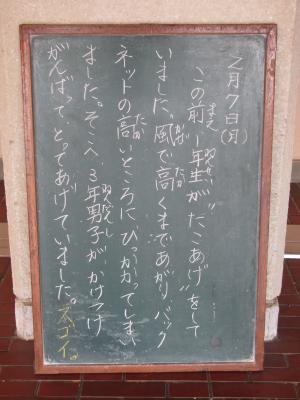 2月7日(月)
この前、1年生が"たこあげ"をして
いました。風で高くまであがり、バック
ネットの高いところにひっかかってしまい
ました。そこへ、3年男子がかけつけ
がんばって、とってあげていました。スゴイ。